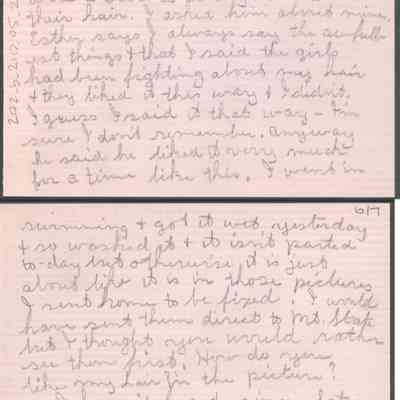 their hair. I asked him about mine.
Esther says I always say the awfulle
est things & that I said the girls
had been fighting about my hair
& they liked it this way & I didn't.
I guess I said it that way - I'm
sure I don't remember. Anyway
he said he liked it very much
for a time like this. I went in
6/7
swimming & got it wet yesterday
& so washed it & it isn't parted
to-day but otherwise it is just
about like it is in those pictures
I sent home to be fixed. I would
have sent them direct to Mt.
but I thought you would rather
see them first. How do you
like my hair in the picture?